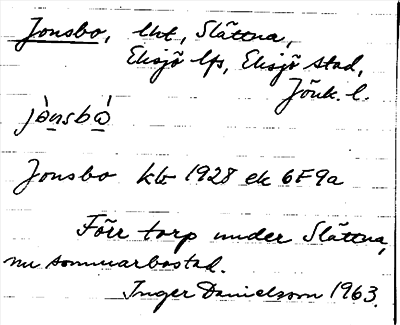 Jonsbo, lht, Slättna,
Eksjö lfs, Eksjö stad,
Jönk. l.
jò̱nsbώ̱
Jonsbo kb 1928 ek 6F9a
Förr torp under Slättna,
nu sommarbostad.
Inger Danielsson 1963.